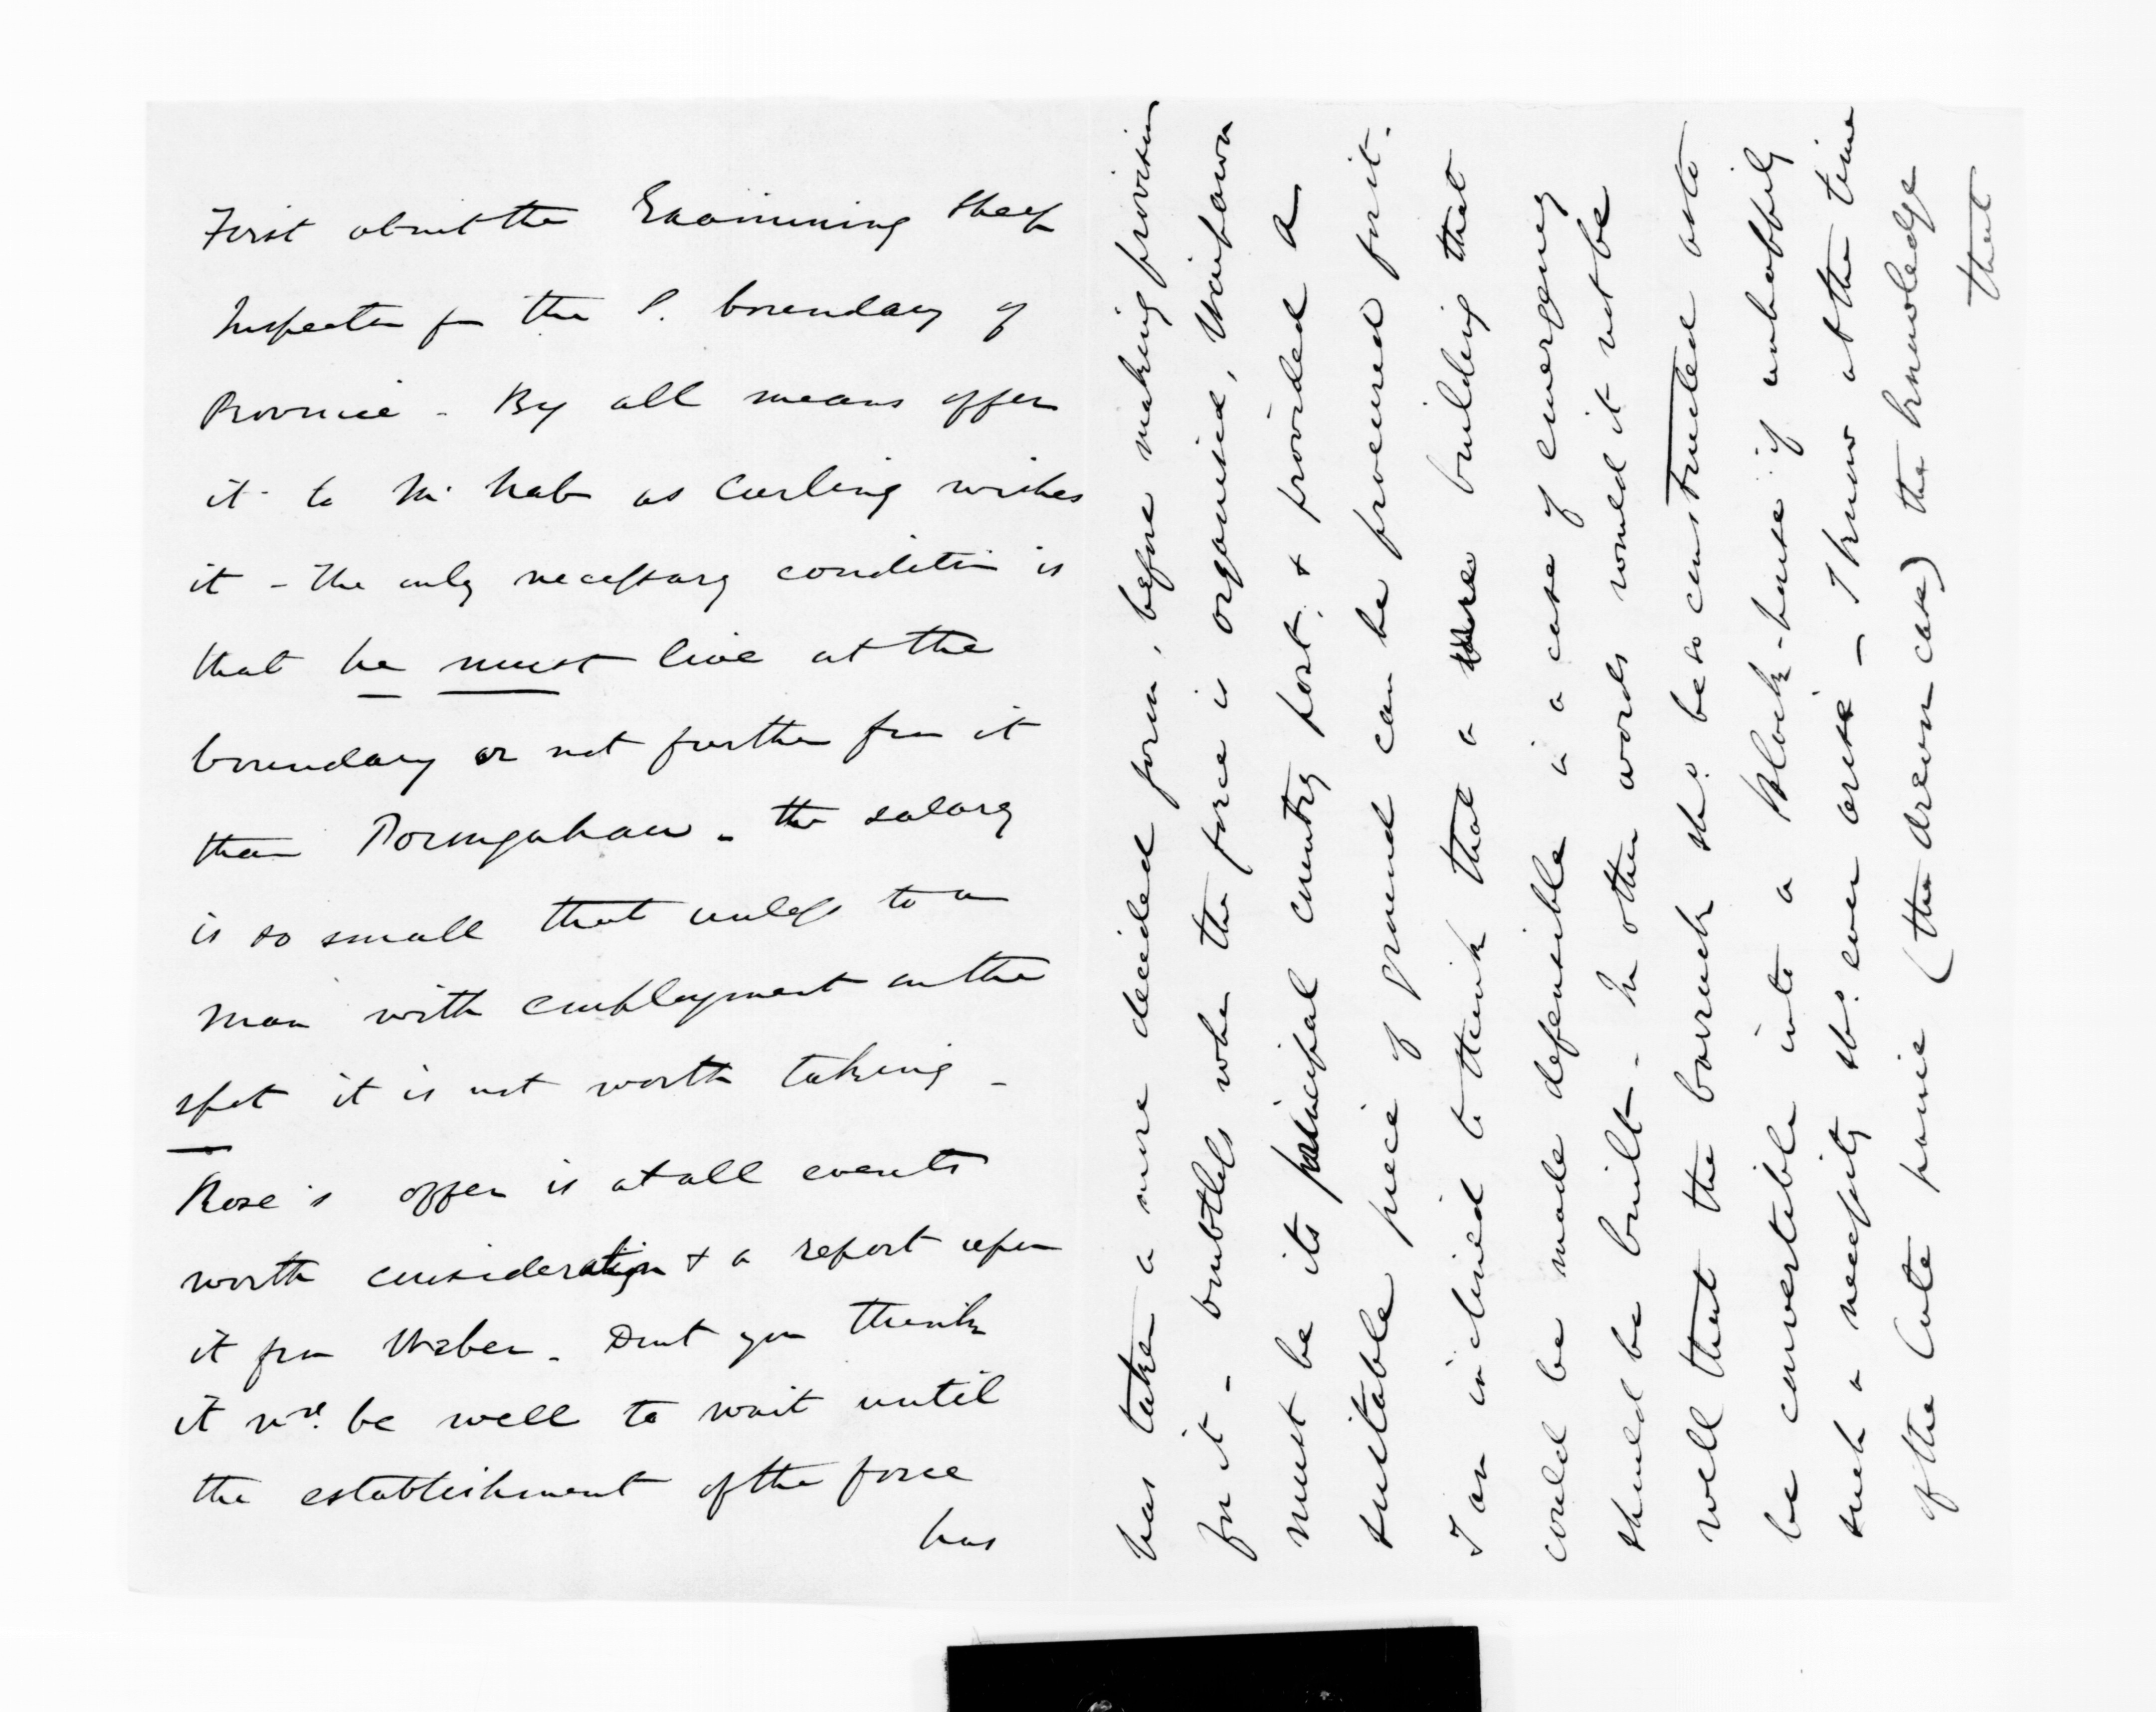 First about the Examining Sheep
Inspector for the S. boundary of
Province - By all means offer
it to as Curling wishes
it - The only necessary condition is
that he must live at the
boundary or not further from it
than Porungahau - the salary
is so small that unless to a
man with employment on the
spot it is not worth taking -
Rose's offer is at all events
worth consideration & a report upon
it from Weber - Dont you think
it wd. be well to wait until
the establishment of the force
has
has taken a more decided form, before making provision
for it - doubtless when the force is organised, Waipawa
must be its principal country post. & provided a
suitable piece of ground can be procured for it.
I am inclined to think that a building that
could be made defensible in a case of emergency
should be built - In other words would it not be
well that the barrack shd. be so constructed as to
be convertible into a Block-house if unhappily
such a necessity shd. ever arise - I know at the time
of the late panic (the dreon case) the knowledge
that